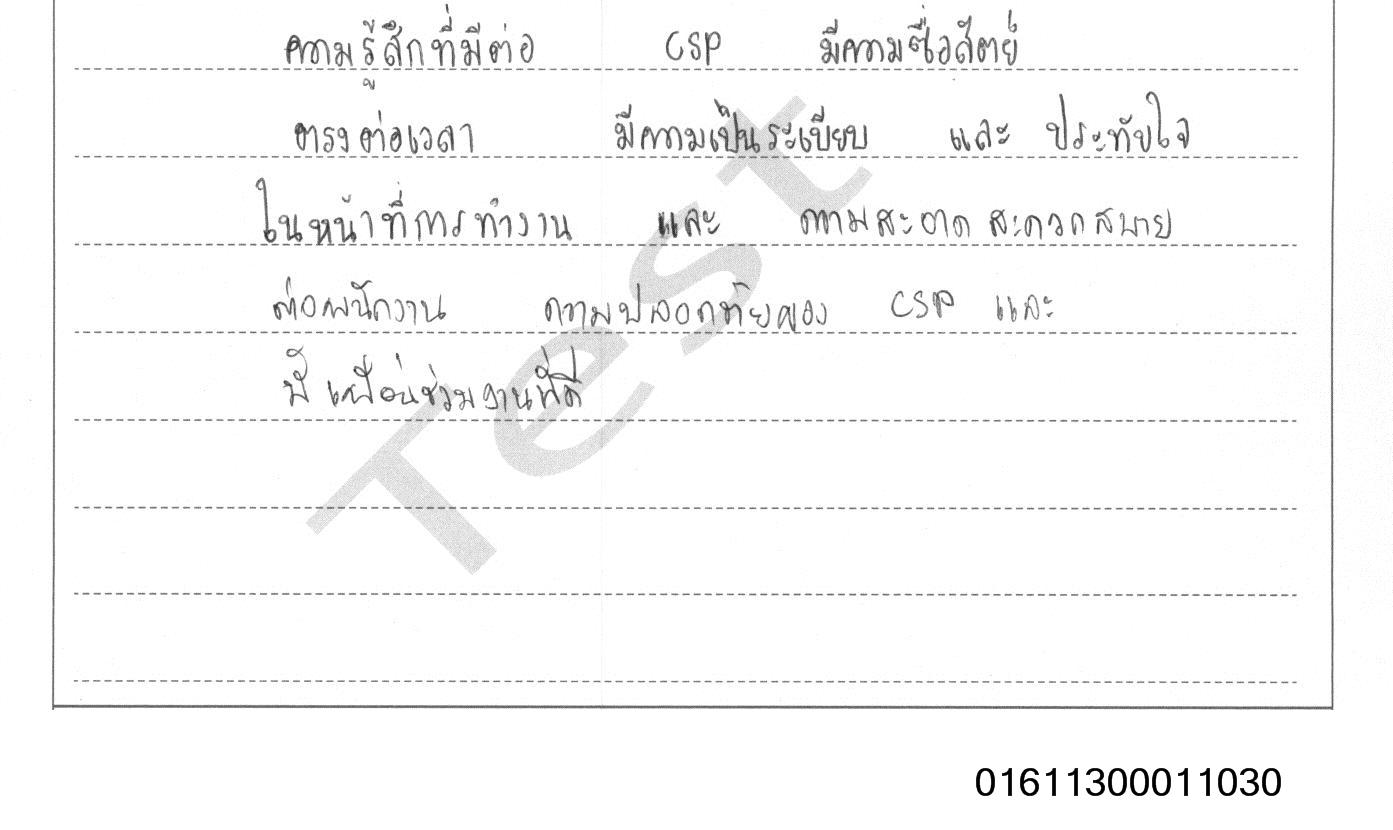 ความรู้สึกที่มีต่อ CSP มีความซื่อสัตย์
ตรงต่อเวลา มีความเป็นระเบียบ และ ประทับใจ
ในหน้าที่การทำงาน และ ความสะอาด สะดวกสบาย
ต่อพนักงาน ความปลอดภัยของ CSP และ
มีเพื่อนร่วมงานที่ดี
Test
01611300011030